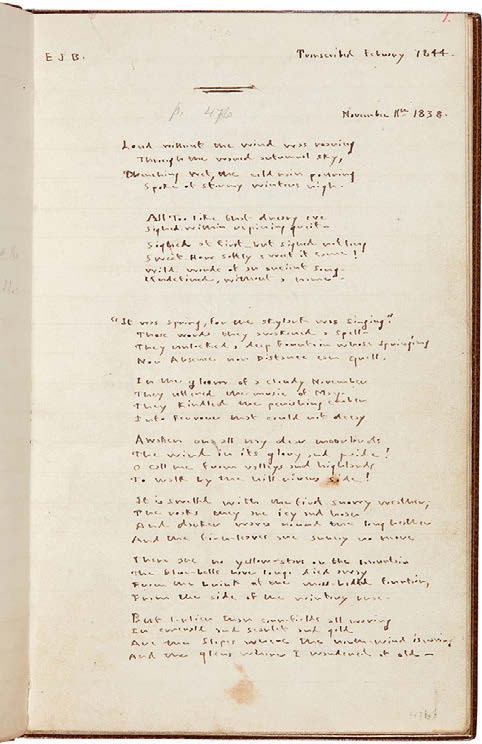 E J B. Transcribed Febuary 1844.
November 11th 1838.
Loud without the wind was roaring
Through the waned autumnal sky,
Drenching wet, the cold rain pouring
Spoke of stormy winters nigh.
All too like that dreary eve
Sighed within repining greif -
Sighed at first - but sighed not long
Sweet How softly sweet it came!
Wild words of an ancient song -
Undefined, without a name -
"It was spring, for the skylark was singing."
Those words they awakened a spell -
They unlocked a deep fountain whose springing
Nor Absence nor Distance can quell.
In the gloom of a cloudy November
They uttered the music of May -
They kindled the perishing ember
Into fervour that could not decay
Awaken on all my dear moorlands
The wind in its glory and pride!
O call me from valleys and highlands
To walk by the hill rivers side!
It is swelled with the first snowy weather;
The rocks they are icy and hoar
And darker waves round the long heather
And the fern-leaves are sunny no more
There are no yellow-stars on the mountain
The blue-bells have long died away
From the brink of the moss-bedded fountain,
From the side of the wintery brae -
But lovlier than corn-fields all waving
In emerald and scarlet and gold
Are the slopes where the north-wind is raving
And the glens where I wandered of old -